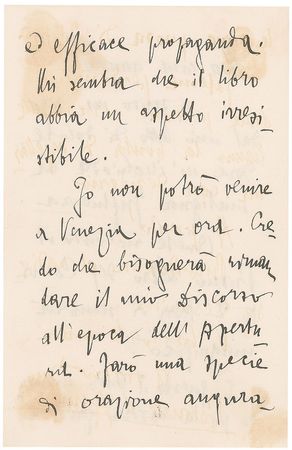 ed efficace propaganda.
Mi sembra che il libro
abbia un aspetto irresi-
stibile.
Io non potrò venire
a Venezia per ora. Cre-
do che bisognerà riman-
dare il mio Discorso
all'epoca dell' Apertu
ra. Sarò una specie
di orazione augura-